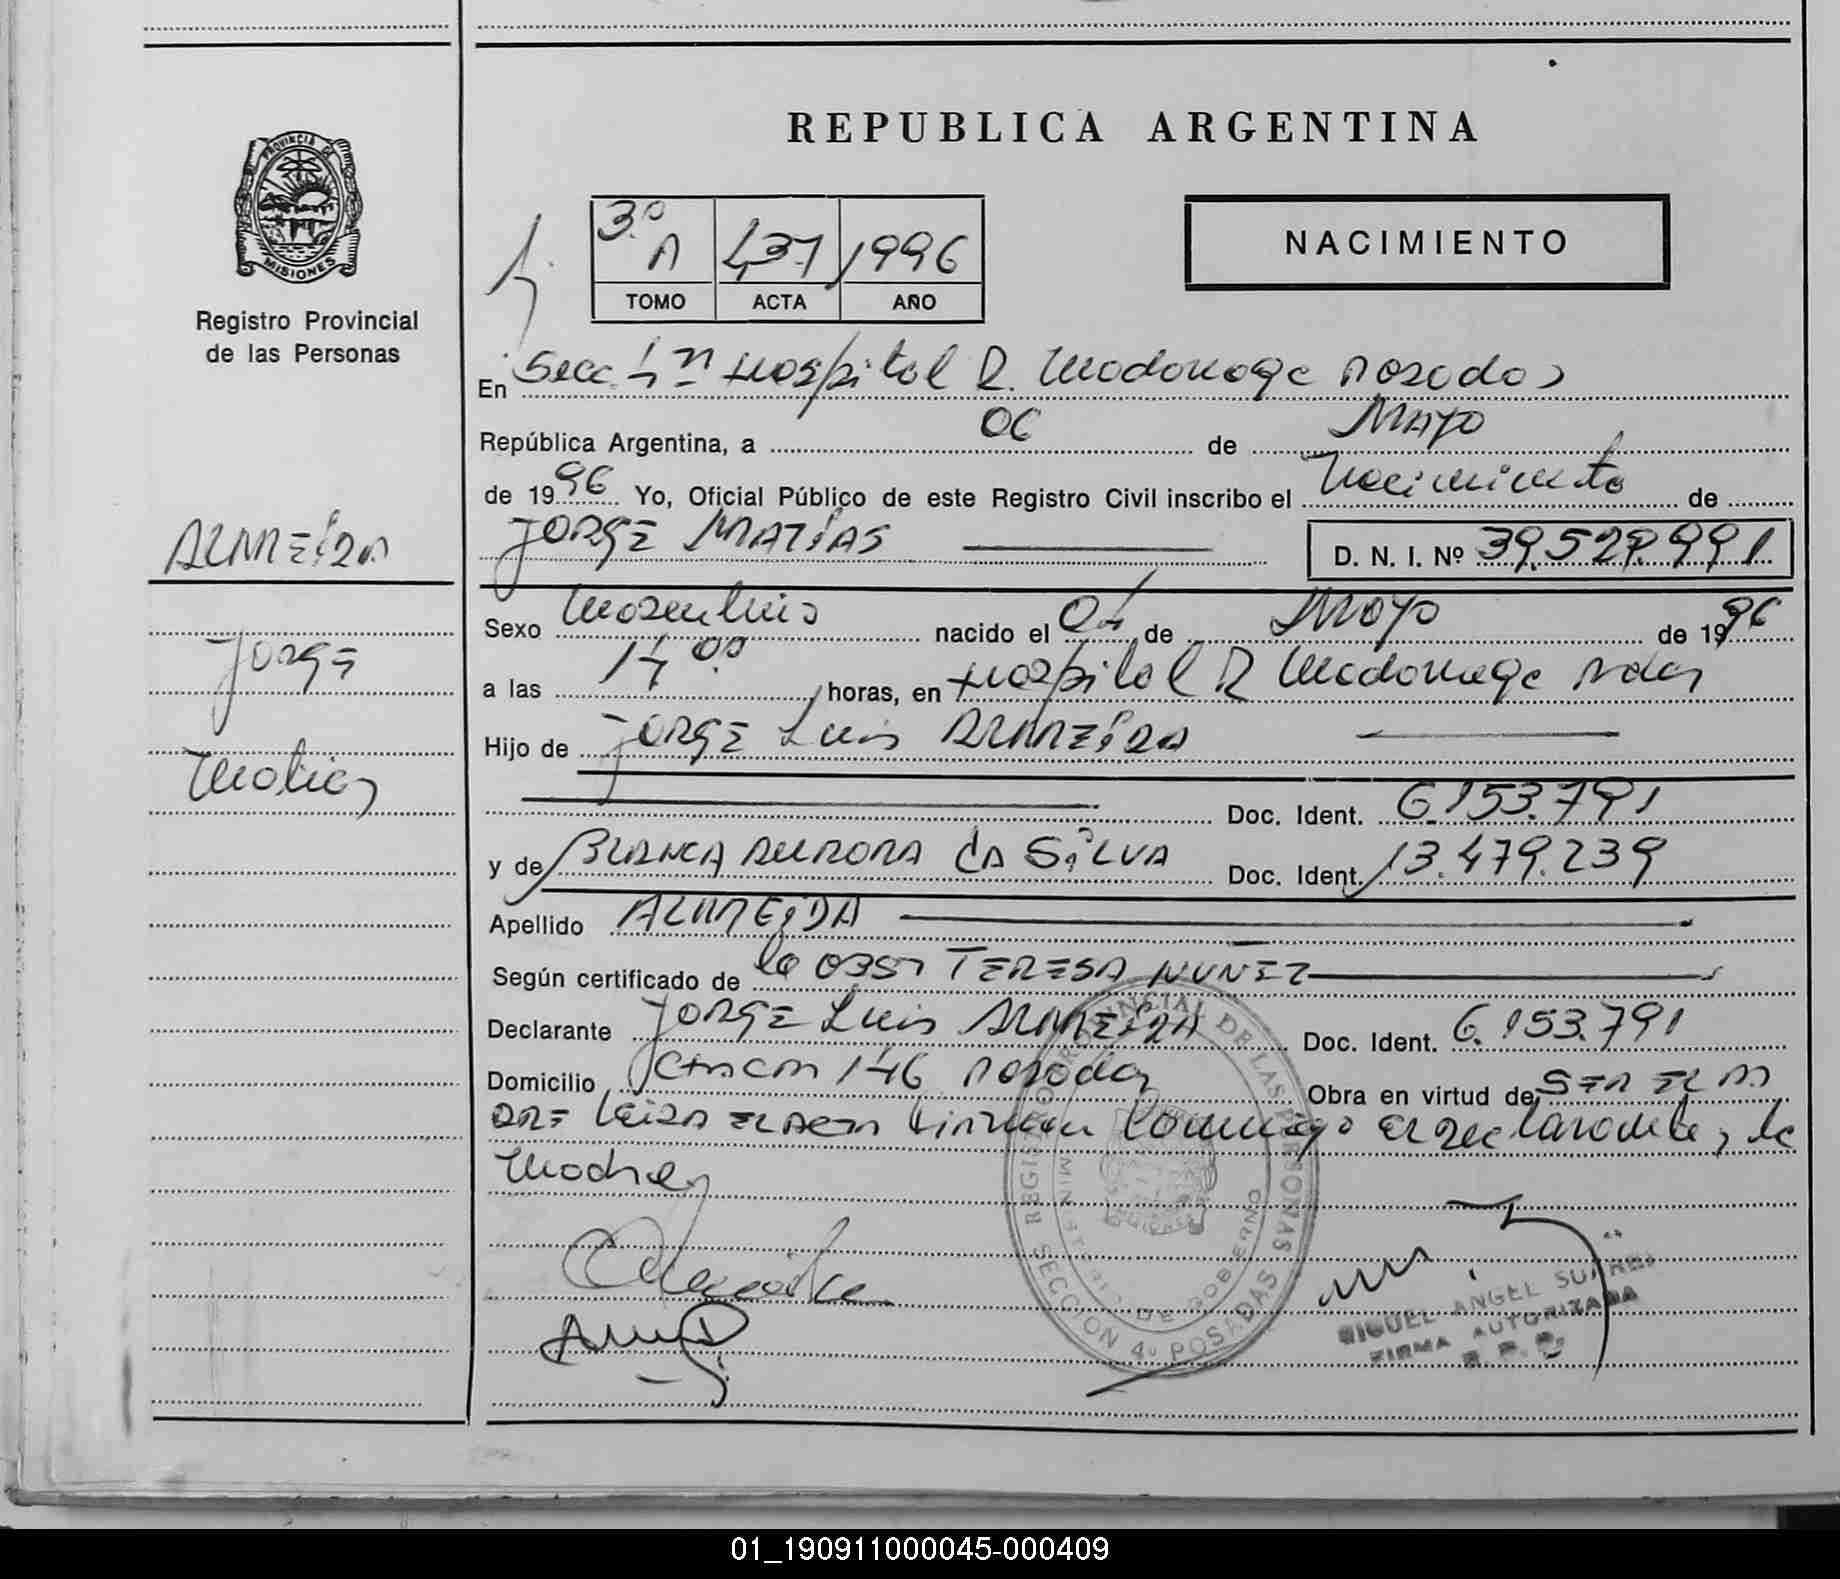 REPUBLICA ARGENTINA
PROVINCIA DE
MISIONES
Registro Provincial
de las Personas
3º A 437 1996
TOMO ACTA AÑO
NACIMIENTO
En Secc. 4ª Hospital R. Madariaga Posadas
República Argentina, a 06 de Mayo
de 1996 Yo, Oficial Público de este Registro Civil inscribo el Nacimiento de
JORGE MATÍAS D. N. I. Nº 39.529.991.
ALMEIDA
Jorge
Matias
Sexo Masculino nacido el 04 de Mayo de 1996
a las 14 00 horas, en Hospital R Madariaga Pdas
Hijo de JORGE Luis ALMEIDA
Doc. Ident. 6.153.791
y de BLANCA AURORA da SILVA Doc. Ident. 13.479.239
Apellido ALMEIDA
Según certificado de la OBST TERESA NUNEZ
Declarante JORGE Luis ALMEIDA Doc. Ident. 6.153.791
Domicilio 146 Posadas Obra en virtud de SER EL PA
DRE Leida EL ACTA Firman Conmigo El Declarante, la
Madre
REGISTRO PROVINCIAL DE LAS PERSONAS
MINISTERIO DE GOBIERNO
SECCION 4º POSADAS
MIGUEL ANGEL SUAREZ
FIRMA AUTORIZADA
R. P. P.
01_190911000045-000409